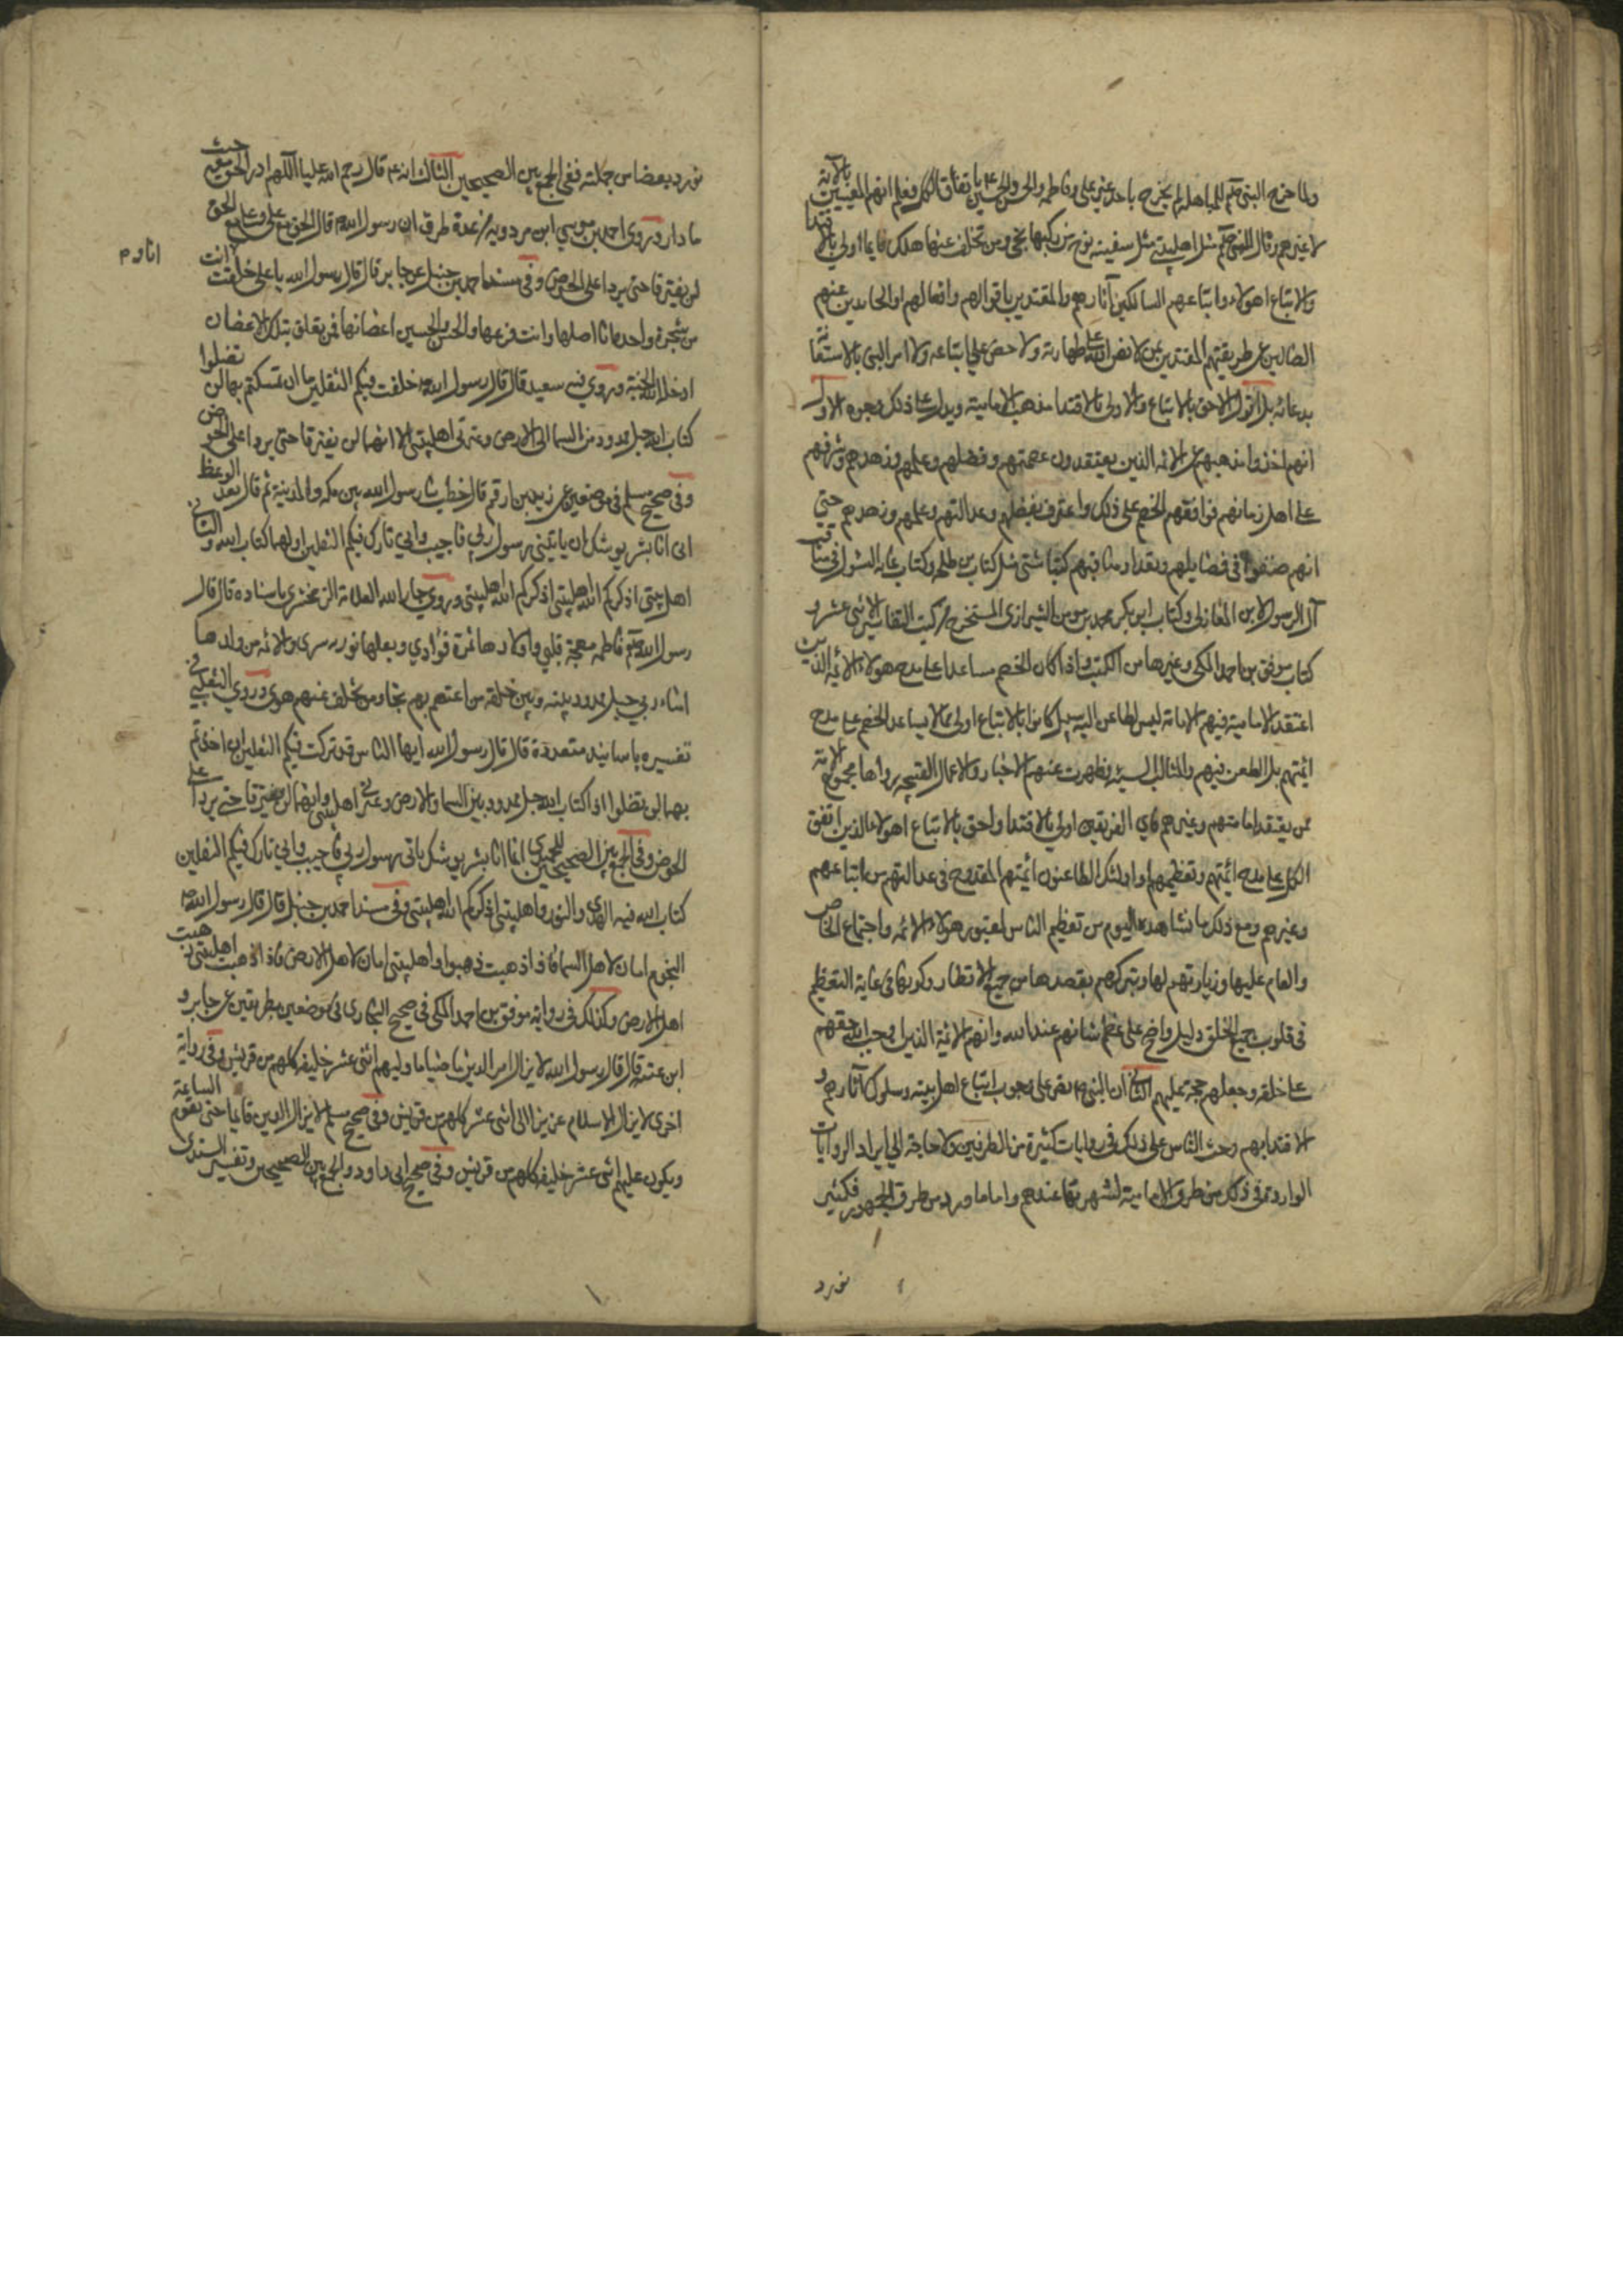 ولما خرج النبي صلعم للمباهلة لم يخرج باحد غير علي وفاطمه والحسن والحسين ع باتفاق الكل فعلم انهم المعنيين بالآية
لا غيرهم وقال النبي صلعم مثل اهلبيتي مثل سفينة نوح من ركبها نجي ومن تخلف عنها هلك فايما اولي بالاقتدا
والاتباع اهولاء واتباعهم السالكين آثارهم والمقتدين باقوالهم وافعالهم او الحايدين عنهم
الضالين عن طريقتهم المقتدين بمن لا نص الله على طهارته ولا حض علي اتباعه ولا امر النبي بالاستغاثة
بدعائه بل القول الاحق بالاتباع والاولى بالاقتدا مذهب الامامية ويدل على ذلك وجوه الاول
انهم اخذوا مذهبهم عن الائمه الذين يعتقدون عصمتهم وفضلهم وعلمهم وزهدهم وشرفهم
على اهل زمانهم فوافقهم الخصم على ذلك واعترف بفضلهم وعدالتهم وعلمهم وزهدهم حتي
انهم صنفوا في فضايلهم وتعداد مناقبهم كتبا شتى مثل كتاب بن طلحه وكتاب غاية السئول في مناقب
آل الرسول لابن المغازلي وكتاب ابو بكر محمد بن مومن الشيرازي المستخرج من كتب التفاسير الاثني عشر و
كتاب موفق بن احمد المكي وغيرها من الكتب واذا كان الخصم مساعدا على مدح هولاء الائمة الذين
اعتقد الامامية فيهم الامامة ليس لطاعن اليه سبيل كانوا بالاتباع اولى ممن لا يساعد الخصم على مدح
ائمتهم بل الطعن فيهم والمثالب السيئة وظهرت عنهم الاخبار والاعمال القبيحة برواها مجموع الامة
ممن يعتقد امامتهم وغيرهم فاي الفريقين اولى بالاقتدا واحق بالاتباع اهولاء الذين اتفق
الكل على مدح ائمتهم وتعظيمهم او اولئك الطاعنون ائمتهم المقدوح في عدالتهم من اتباعهم
وغيرهم ومع ذلك ما نشاهده اليوم من تعظيم الناس لقبور هولاء الائمه واجتماع الخاص
والعام عليها وزيارتهم لها وتبركهم بقصدها من جميع الاقطار وكونها في غاية التعظيم
في قلوب جميع الخلق دليل واضح على عظم شانهم عند الله وانهم الائمة الذين اوجب الله حقهم
على خلقه وجعلهم حجة عليهم الثاني ان النبي ص نص على وجوب اتباع اهل بيته وسلوك آثارهم و
الاقتدا بهم وحث الناس على ذلك في روايات كثيرة من الطرفين ولا حاجة الى ايراد الروايات
الواردة في ذلك من طرق الامامية لشهرتها عندهم واما ما ورد من طرق الجمهور فكثير
نورد
نورد بعضا من جملته ففي الجمع بين الصحيحين الثالث انه ع قال رحم الله عليا اللهم ادر الحق معه حيث
ما دار وروى احمد بن موسي ابن مردويه من عدة طرق ان رسول الله ص قال الحق مع علي وعلي مع الحق
لن يفترقا حتى يردا على الحوض وفي مسند احمد بن حنبل عن جابر قال قال رسول الله يا علي خلقت انا وانت
من شجرة واحدة انا اصلها وانت فرعها والحسن والحسين اغصانها فمن تعلق بتلك الاغصان
ادخله الله الجنة وروي فيه سعيد قال قال رسول الله ص خلفت فيكم الثقلين ما ان تمسكتم بهما لن تضلوا
كتاب الله حبل ممدود من السما الى الارض وعترتي اهلبيتي الا انهما لن يفترقا حتى يردا على الحوض
وفي صحيح مسلم في موضعين عن زيد بن ارقم قال خطب بنا رسول الله بين مكه والمدينة ثم قال بعد الوعظ
انى انا بشر يوشك ان ياتيني رسول ربي فاجيب واني تارك فيكم الثقلين اولهما كتاب الله والثاني
اهلبيتى اذكركم الله اهلبيتى اذكركم الله اهلبيتى وروى جار الله العلامة الزمخشري باسناده قال قال
رسول الله صلعم فاطمه مهجة قلبي واولادها ثمرة فوادي وبعلها نور بصرى والائمه من ولدها
امناء ربي حبل ممدود بينه وبين خلقه من اعتصم بهم نجا ومن تخلف عنهم هوى وروي الثعلبي في
تفسيره باسانيد متعددة قال قال رسول الله ايها الناس قد تركت فيكم الثقلين ان اخذتم
بهما لن تضلوا اولهما كتاب الله حبل ممدود بين السما والارض وعترتي اهلبيتي وانهما لن يفترقا حتى يردا على
الحوض وفي الجمع بين الصحيحين للحميدي انما انا بشر يوشك ياتي رسول ربي فاجيب واني تارك فيكم الثقلين
كتاب الله فيه الهدى والنور واهلبيتى اذكركم الله اهلبيتى وفي مسند احمد بن حنبل قال قال رسول الله ص
النجوم امان لاهل السما فاذا ذهبت ذهبوا واهلبيتي امان لاهل الارض فاذا ذهب اهلبيتى ذهب
اهل الارض وكذلك في رواية موفق بن احمد المكي في صحيح البخاري في موضعين بطريقين عن جابر و
ابن عتبة قال قال رسول الله لا يزال امر الدين ماضيا ما وليهم اثنى عشر خليفه كلهم من قريش وفي رواية
اخرى لا يزال الاسلام عزيزا الى اثنى عشر كلهم من قريش وفي صحيح مسلم لا يزال الدين قايما حتى تقوم الساعة
ويكون عليهم اثنى عشر خليفه كلهم من قريش وفي صحيح ابى داود والجمع بين الصحيحين وتفسير السدي